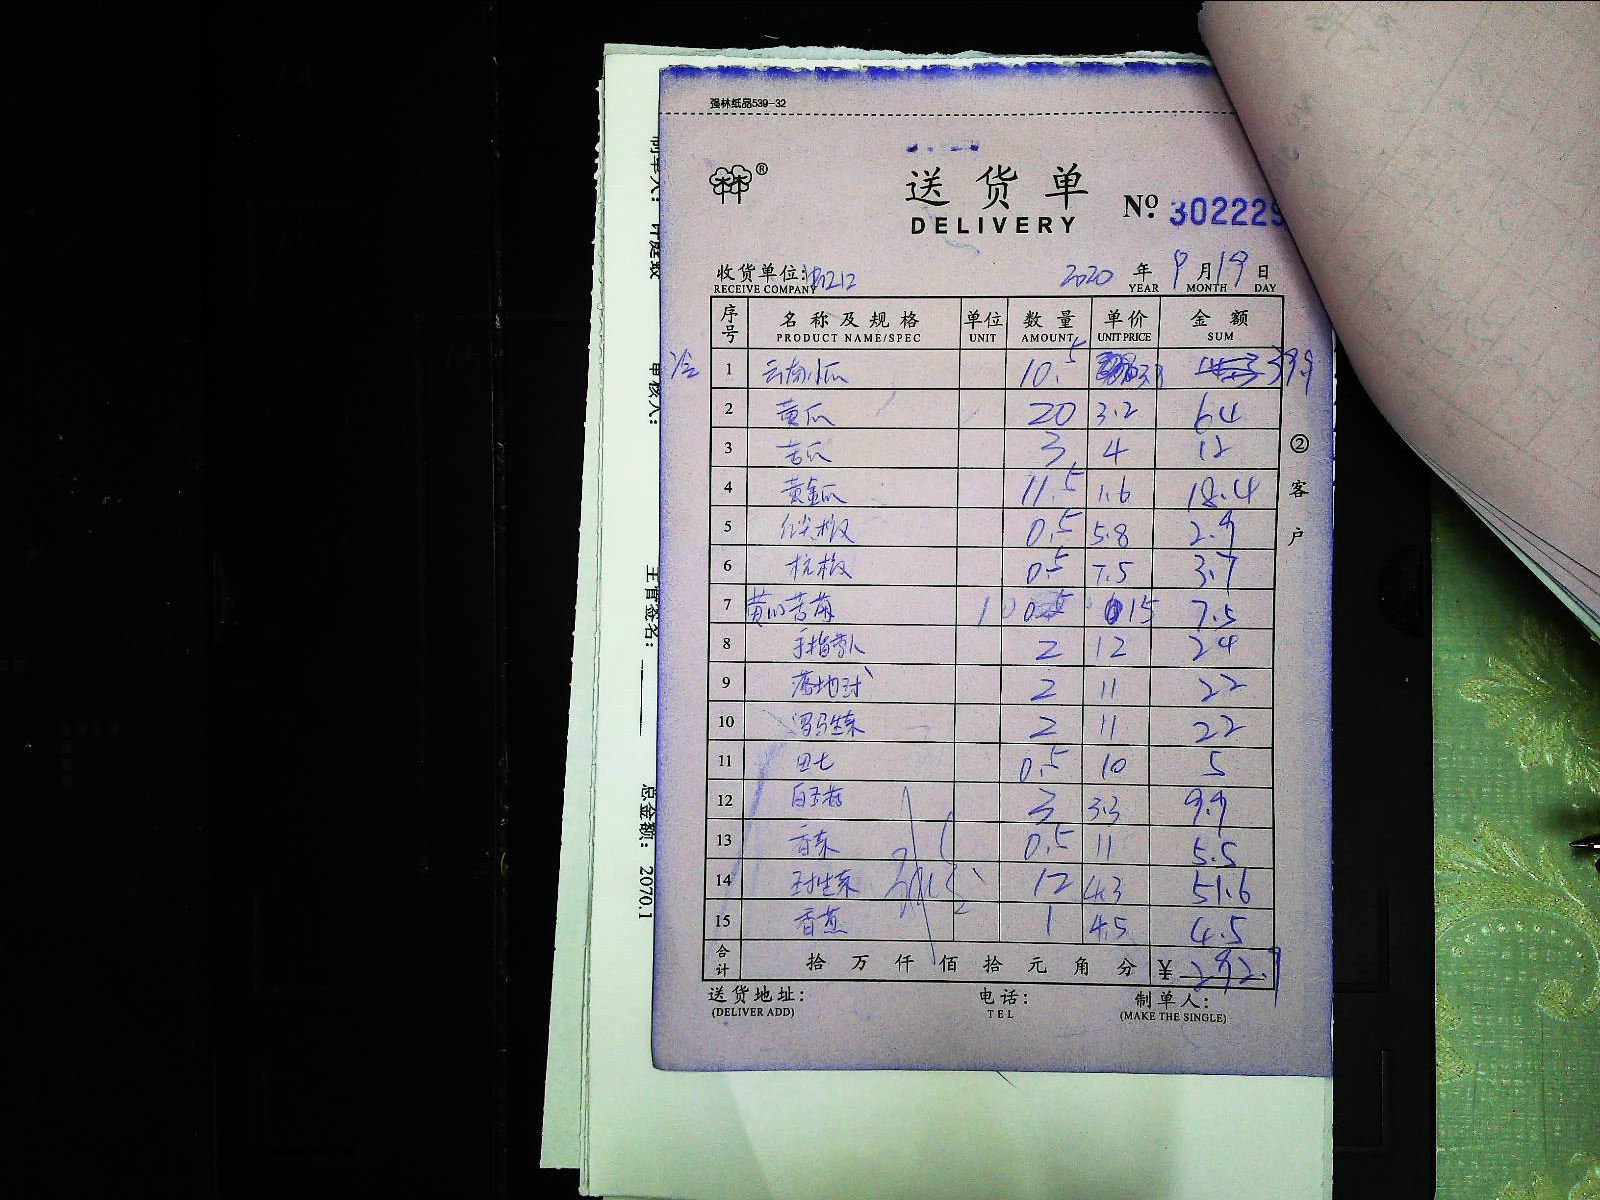 强林纸品539-32
送货单
DELIVERY
No. 302229
收货单位:
RECEIVE COMPANY
2020 年 9 月 19 日
YEAR MONTH DAY
序号 名称及规格 单位 数量 单价 金额
PRODUCT NAME/SPEC UNIT AMOUNT UNIT PRICE SUM
1 云南小瓜 10.5 39.9
2 黄瓜 20 3.2 64
3 苦瓜 3 4 12
4 黄金瓜 11.5 1.6 18.4
5 尖椒 0.5 5.8 2.9
6 杭椒 0.5 7.5 3.7
7 苦菊 15 7.5
8 手指 2 12 24
9 落地球 2 11 22
10 罗马生菜 2 11 22
11 田七 0.5 10 5
12 白玉菇 3 3.3 9.9
13 香菜 0.5 11 5.5
14 球生菜 12 4.3 51.6
15 香蕉 1 4.5 4.5
合计 拾万仟佰拾元角分 ¥ 292.9
送货地址:
(DELIVER ADD)
电话:
TEL
制单人:
(MAKE THE SINGLE)
②客户
审核人:
主管签名:
总金额: 2070.1